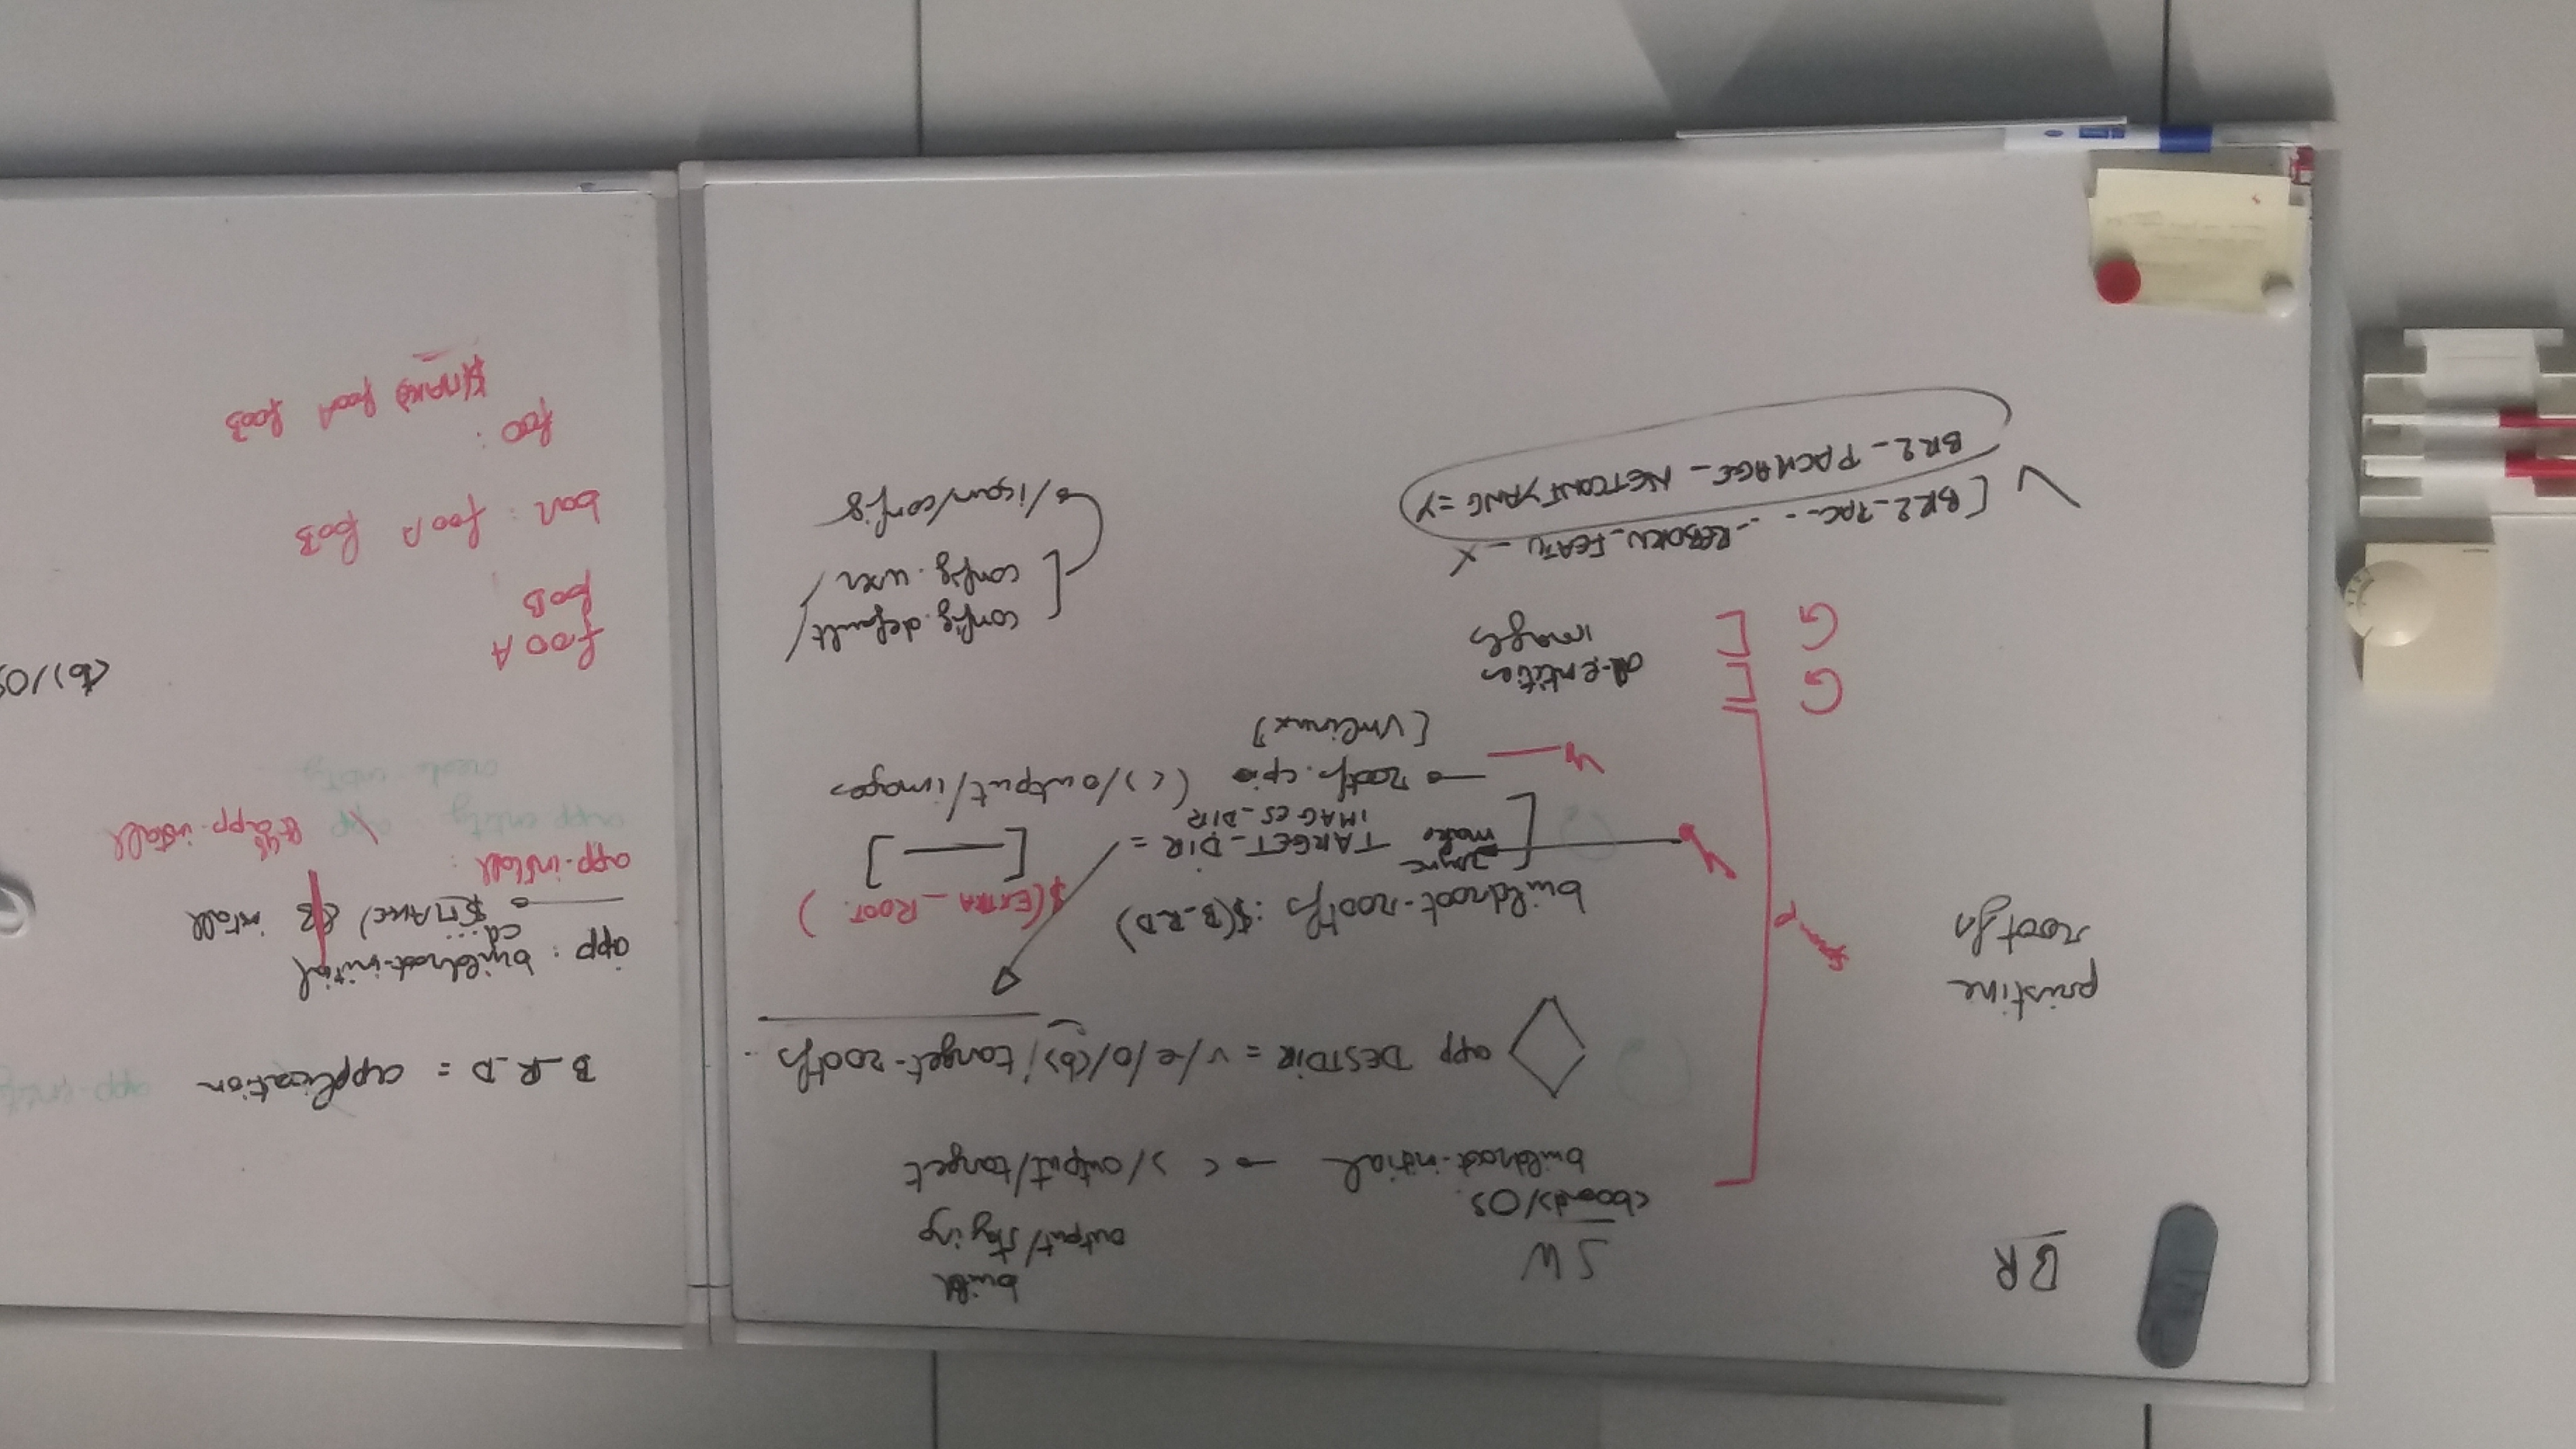 BR
SW
build
output/staging
<board>/OS
buildroot-initial → < >/output/target
app DESTDIR = v/e/o/(b)/target-rootfs
pristine
rootfs
buildroot-rootfs : $(B_R_D)
$(EXTRA_ROOT)
rsync
make TARGET_DIR =
IMAGES_DIR
rootfs.cpio (< >/output/images
[vmlinux]
all-entities
images
config.default
config.user
[BR2_PAC- - - REBORN_FEATU_X
BR2_PACKAGE_NETCONFYANG=Y
B_R_D = application
app : buildroot-initial
cd ...
$(MAKE) install
app-install :
app-install
app entity app
create entity
foo A
foo B
bar : foo A foo B
foo :
$(MAKE) foo A foo B